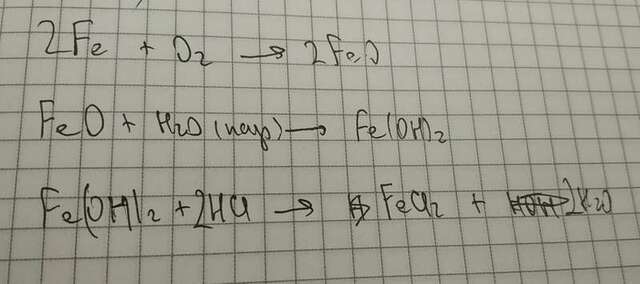 2Fe + O2 → 2FeO
FeO + H2O (пар) → Fe(OH)2
Fe(OH)2 + 2HCl → FeCl2 + 2H2O